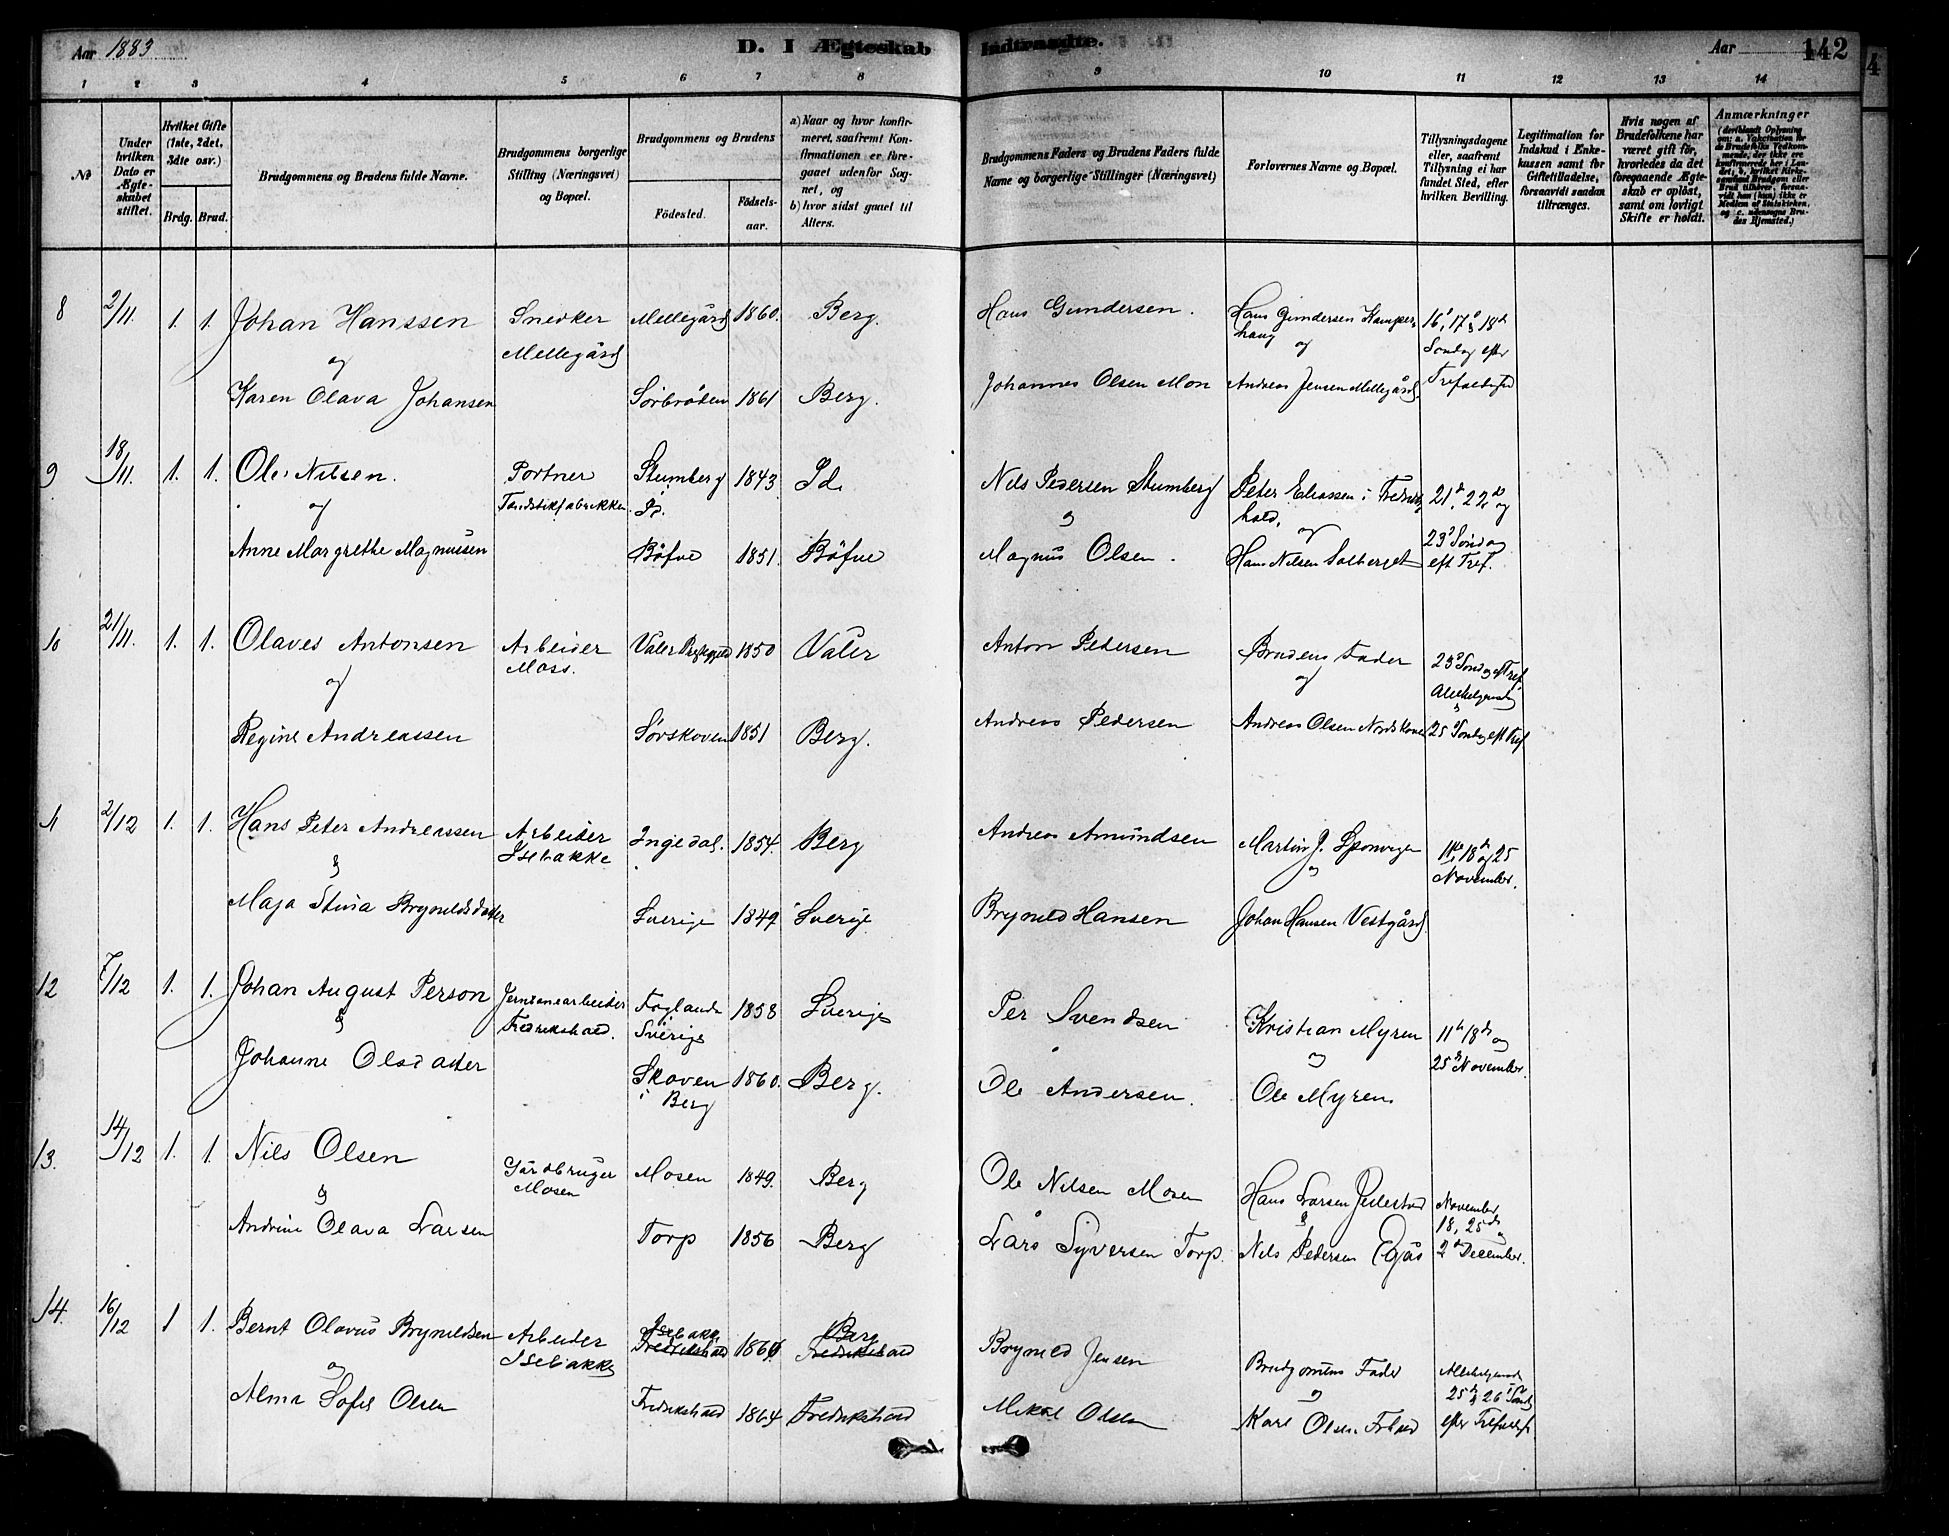 Aar 1883
D. I Ægteskab Indtraadte.
Aar 142
1 2 3 4 5 6 7 8 9 10 11 12 13 14
No
Under hvilken Dato er Ægteskabet stiftet.
Hvilket Gifte (1ste, 2det, 3die osv.)
Brdg. Brud.
Brudgommens og Brudens fulde Navne.
Brudgommens borgerlige Stilling (Næringsvei) og Bopæl.
Brudgommens og Brudens
Födested.
Födselsaar.
a) Naar og hvor konfirmeret, saafremt Konfirmationen er foregaaet udenfor Sognet, og
b) hvor sidst gaaet til Alters.
Brudgommens Faders og Brudens Faders fulde Navne og borgerlige Stillinger (Næringsvei)
Forlovernes Navne og Bopæl.
Tillysningsdagene eller, saafremt Tillysning ei har fundet Sted, efter hvilken Bevilling.
Legitimation for Indskud i Enkekassen samt for Giftetilladelse, forsaavidt saadan tiltrænges.
Hvis nogen af Brudefolkene har været gift för, hvorledes da det foregaaende Ægteskab er oplöst, samt om lovligt Skifte er holdt.
Anmærkninger
8 2/11. 1. 1. Johan Hanssen Snedker Mellegård 1860. Berg. Hans Gundersen. Hans Gundersen Kamperhaug 16de, 17de, 18de
og Mellegård og Søndag efter
Karen Olava Johansen Sörbröden 1861 Berg. Johannes Olsen Mon Andreas Jensen Mellegård. Trefoldighed
9 18/11. 1. 1. Ole Nilsen. Portner Stumberg 1843 Id. Nils Pedersen Stumberg Peter Eliassen i Fredrikshald, 21de, 22de og
og Tændstikfabrikken. Id. og og 23de Søndag
Anne Margrethe Magnussen Böfve 1851. Böfve Magnus Olsen. Hans Nilsen Solberget eft Tref.
10 21/11. 1. 1. Olaves Antonsen Arbeider Valer Prestegjeld 1850 Valer Anton Pedersen Brudens Fader 23de Søndag e Tref
og Moss. og Allehelgensd
Regine Andreassen Sørskoven 1851 Berg. Andreas Pedersen Andreas Olsen Nordskoven 25de Søndag eft Tref
11 2/12 1. 1. Hans Peter Andreassen Arbeider Ingedal. 1854. Berg Andreas Amundsen Martin J. Sponvigen 11te, 18de og 25
& Isebakke og November.
Maja Stina Bryneldsdatter Sverige 1849 Sverige Bryneld Hansen Johan Hansen Vestgård.
12 7/12 1. 1. Johan August Person Jernbanearbeider Foglanda 1858 Sverige Per Svendsen Kristian Myren 11te 18de og
& Fredrikshald. Sverige og 25de November.
Johanne Olsdatter Skoven i Berg 1860. Berg. Ole Andersen. Ole Myren
13. 14/12 1. 1. Nils Olsen Gårdbruger Mosen 1849. Berg Ole Nilsen Mosen Hans Larsen Jellestad November
& Mosen & 18, 25de
Andrine Olava Larsen Torp 1856 Berg Lars Syversen Torp. Nils Pedersen 2de December.
14. 16/12 1 1. Bernt Olavus Bryneldsen Arbeider Isebakke Fredrikshald 186 Berg Fredrikshald Bryneld Jensen Brudgommens Fader Allehelgensd
og Isebakke og 25de & 26de Sønd
Alma Sofie Olsen Fredrikshald 1864 Fredrikshald Mikal Olsen Karl Olsen efter Trefoldigh